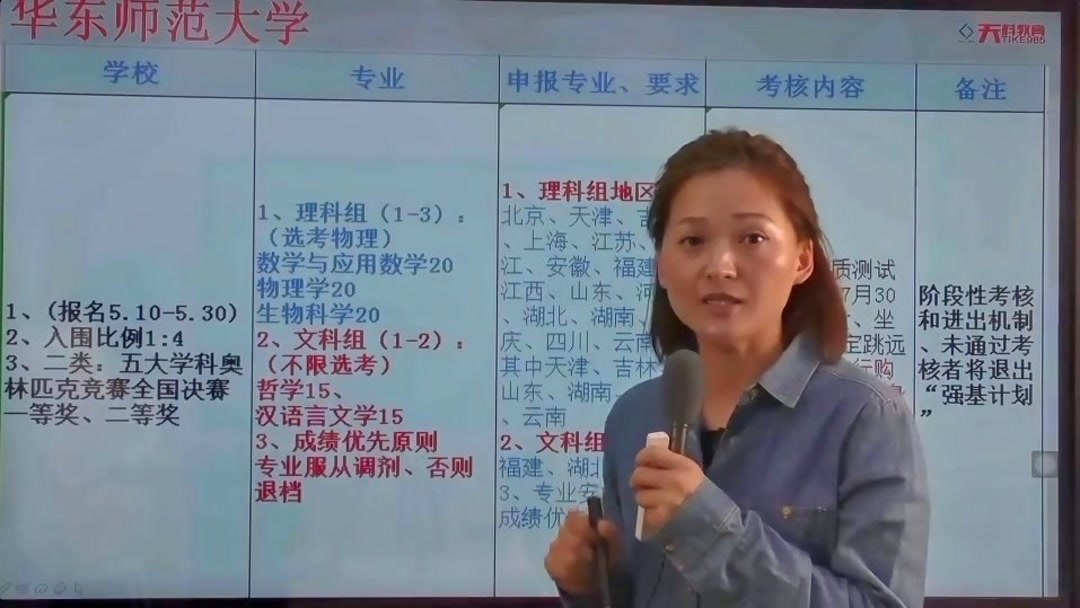 华东师范大学
天科教育
TIKE985
学校
专业
申报专业、要求
考核内容
备注
1、(报名5.10-5.30)
2、入围比例1:4
3、二类：五大学科奥
林匹克竞赛全国决赛
一等奖、二等奖
1、理科组（1-3）：
（选考物理）
数学与应用数学20
物理学20
生物科学20
2、文科组（1-2）：
（不限选考）
哲学15、
汉语言文学15
3、成绩优先原则
专业服从调剂、否则
退档
1、理科组地区
北京、天津、
、上海、江苏、
江、安徽、福建
江西、山东、
、湖北、湖南、
庆、四川、云南
其中天津、吉林
山东、湖南
、云南
2、文科组
福建、湖北
3、专业
成绩优
质测试
7月30
、坐
定跳远
行购
阶段性考核
和进出机制
、未通过考
核者将退出
“强基计划
”